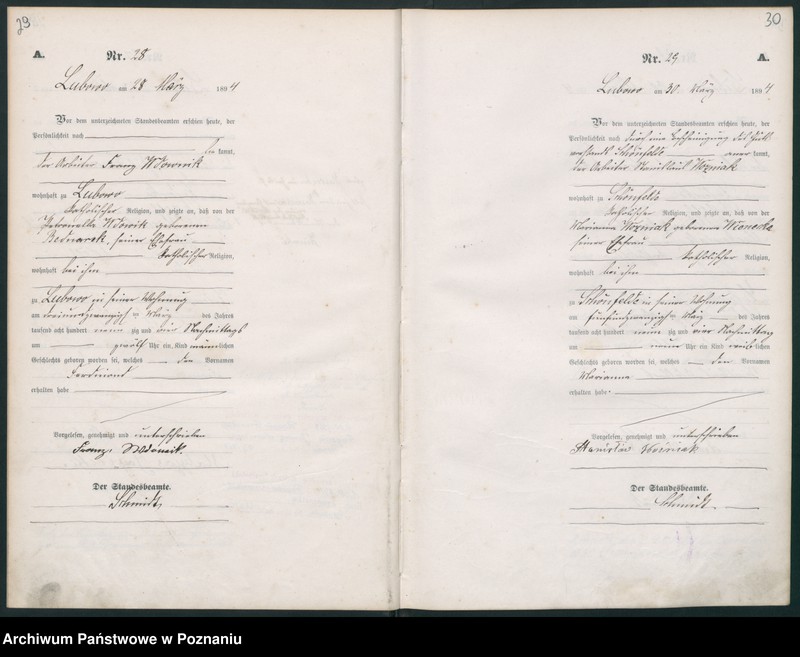 29
A.
Nr. 28
Lubowo am 28 März 1894
Vor dem unterzeichneten Standesbeamten erschien heute, der
Persönlichkeit nach
be kannt,
der Arbeiter Franz
wohnhaft zu Lubowo
katholischer Religion, und zeigte an, daß von der
Petronella geborenen
Bednarek, seiner Ehefrau
katholischer Religion,
wohnhaft bei ihm
zu Lubowo in seiner Wohnung
am dreiundzwanzigsten März des Jahres
tausend acht hundert neun zig und vier Nachmittags
um zwölf Uhr ein Kind männlichen
Geschlechts geboren worden sei, welches den Vornamen
Ferdinand
erhalten habe
Vorgelesen, genehmigt und unterschrieben
Franz
Der Standesbeamte.
Schmidt
30
Nr. 29
A.
Lubowo am 30. März 1894
Vor dem unterzeichneten Standesbeamten erschien heute, der
Persönlichkeit nach durch eine Bescheinigung des
Schönfelds aner kannt,
der Arbeiter Stanislaus Wozniak
wohnhaft zu Schönfelds
katholischer Religion, und zeigte an, daß von der
Marianna Wozniak geborenen
seiner Ehefrau
katholischer Religion,
wohnhaft bei ihm
zu Schönfelds in seiner Wohnung
am fünfundzwanzigsten März des Jahres
tausend acht hundert neun zig und vier Nachmittag
um neun Uhr ein Kind weiblichen
Geschlechts geboren worden sei, welches den Vornamen
Marianna
erhalten habe
Vorgelesen, genehmigt und unterschrieben
Stanisław Woźniak
Der Standesbeamte.
Schmidt
Archiwum Państwowe w Poznaniu